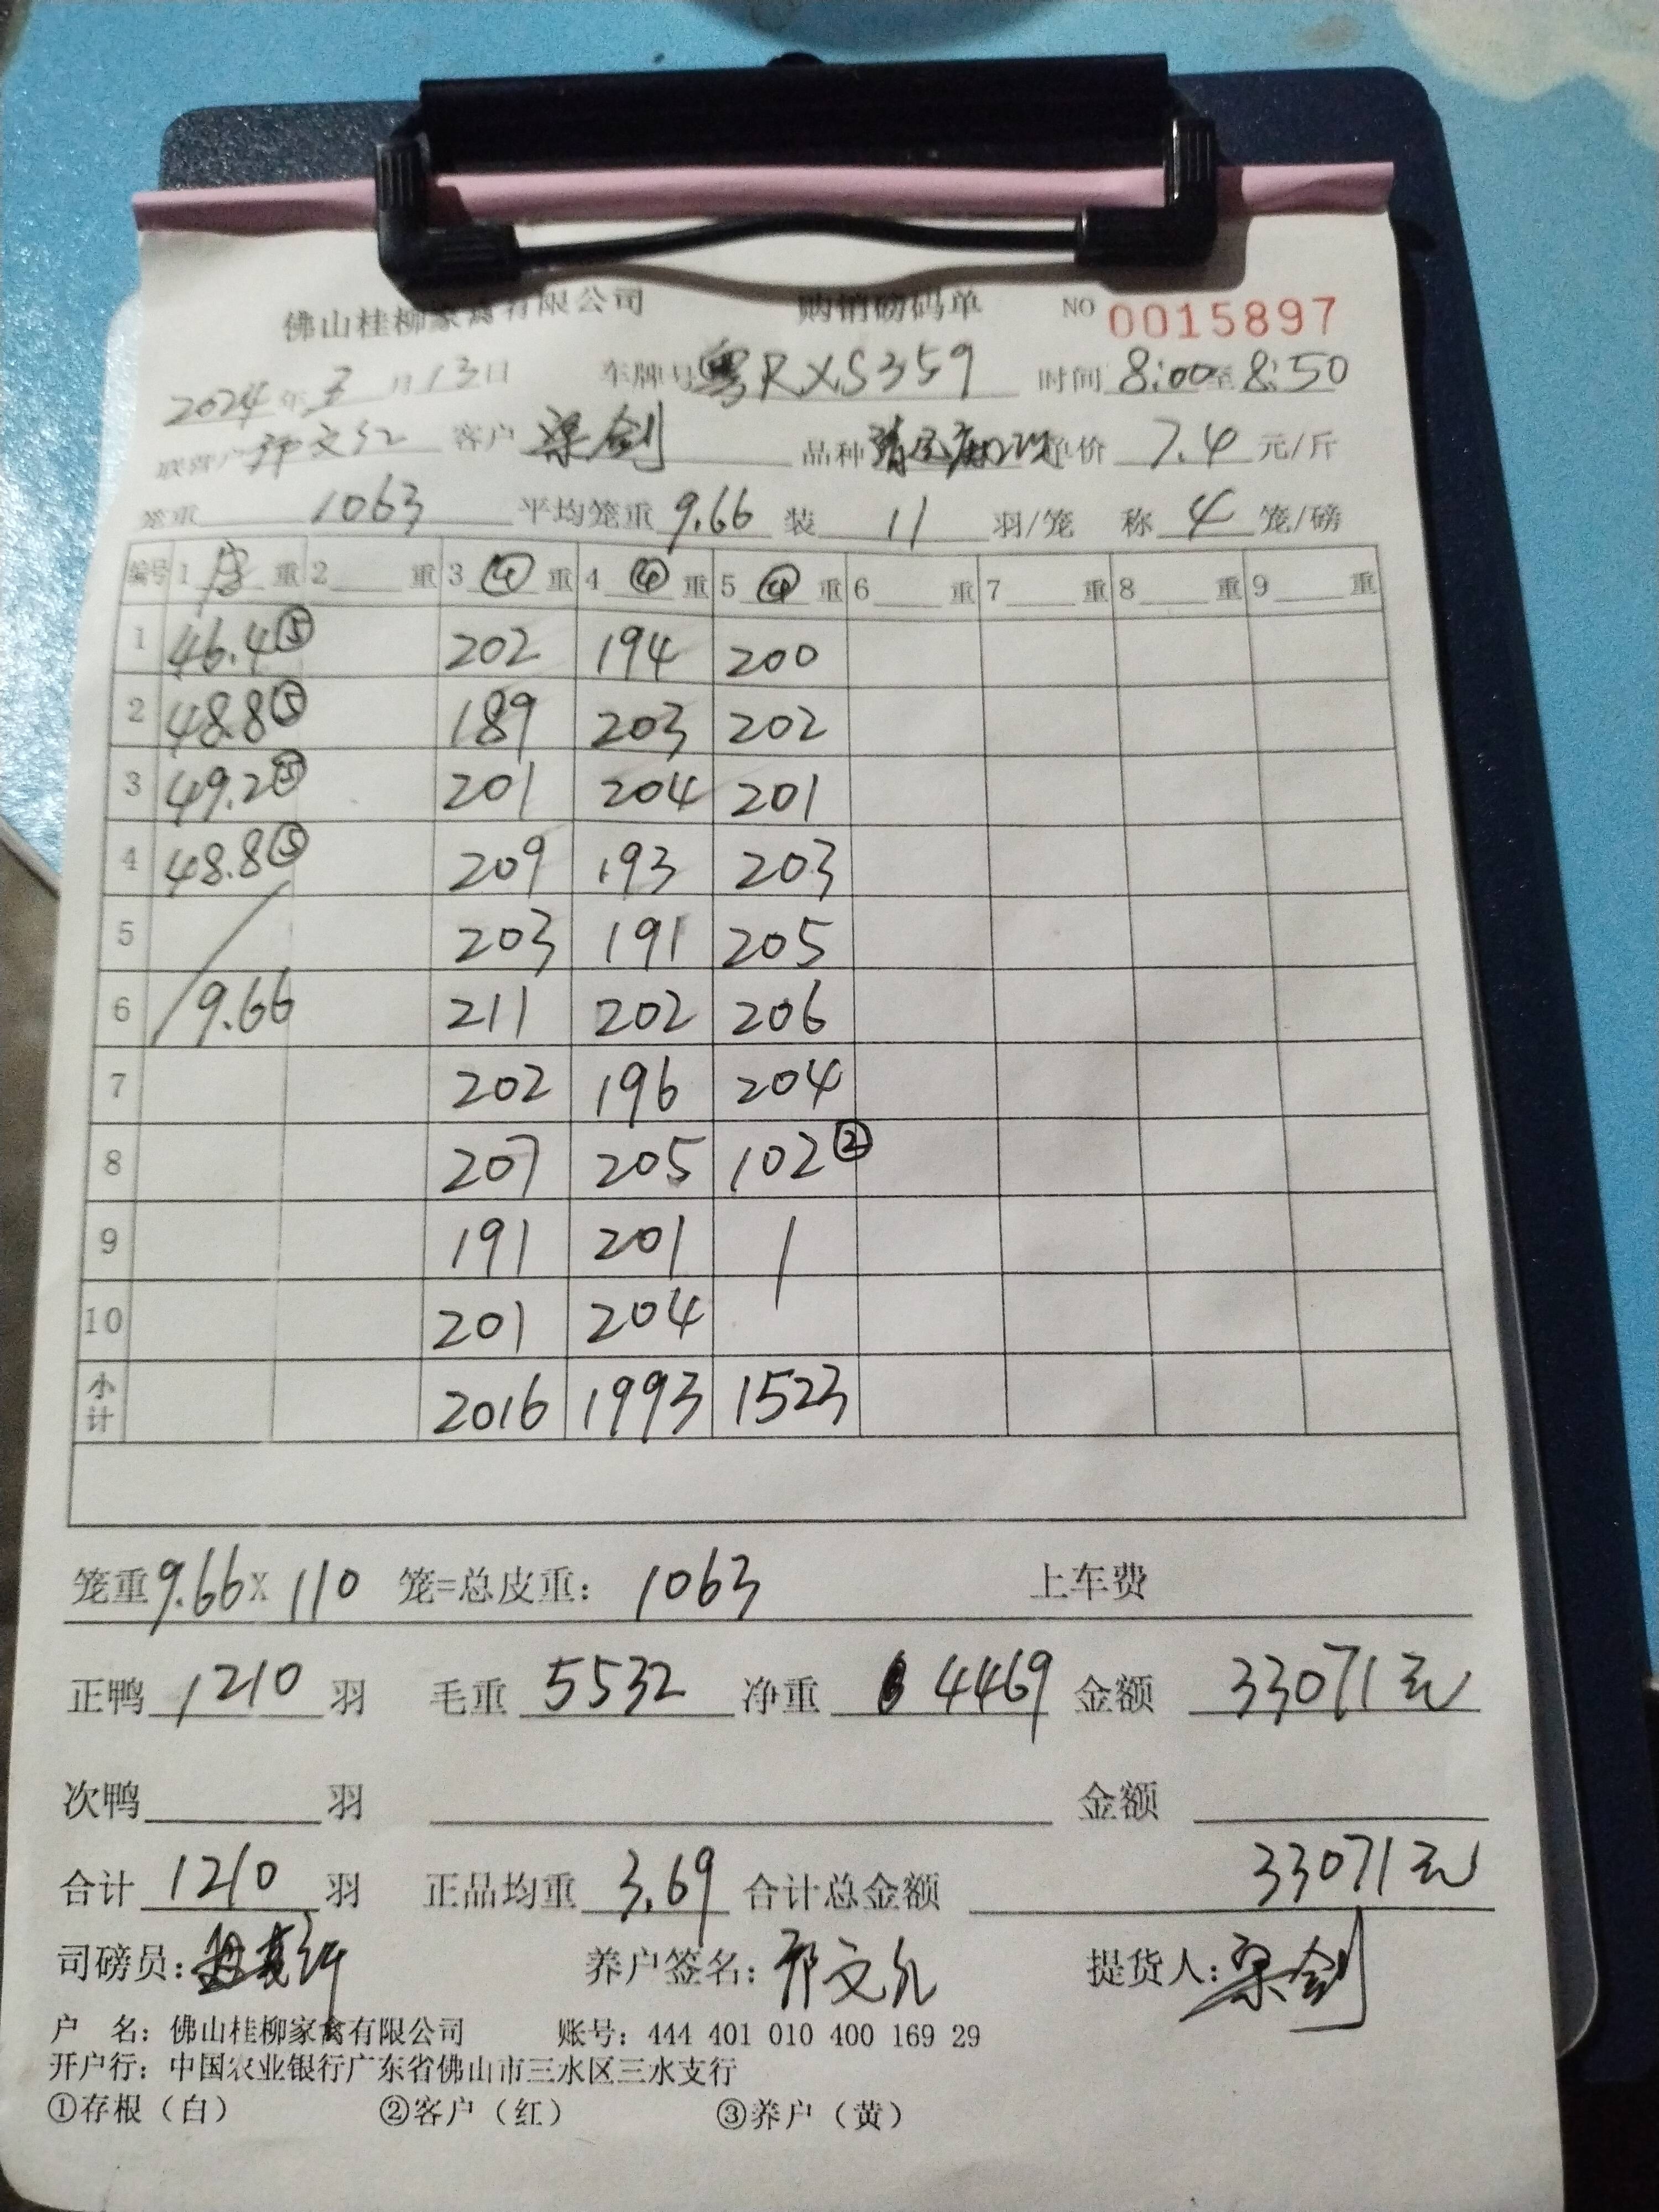 佛山桂柳家禽有限公司 购销磅码单 NO 0015897
2024年3月13日 车牌号粤RXS359 时间8:00至8:50
联营户 文红 客户 梁剑 品种 单价 7.4 元/斤
笼重 1063 平均笼重 9.66 装 11 羽/笼 称 4 笼/磅
编号 1 重 2 重 3 ④ 重 4 ④ 重 5 ④ 重 6 重 7 重 8 重 9 重
1 46.4⑤ 202 194 200
2 48.8⑤ 189 203 202
3 49.2⑤ 201 204 201
4 48.8⑤ 209 193 203
5 203 191 205
6 9.66 211 202 206
7 202 196 204
8 207 205 102②
9 191 201
10 201 204
小计 2016 1993 1523
笼重9.66X 110 笼=总皮重: 1063 上车费
正鸭 1210 羽 毛重 5532 净重 4469 金额 33071元
次鸭 羽 金额
合计 1210 羽 正品均重 3.69 合计总金额 33071元
司磅员: 养户签名: 提货人:梁剑
户 名: 佛山桂柳家禽有限公司 账号: 444 401 010 400 169 29
开户行: 中国农业银行广东省佛山市三水区三水支行
①存根（白） ②客户（红） ③养户（黄）